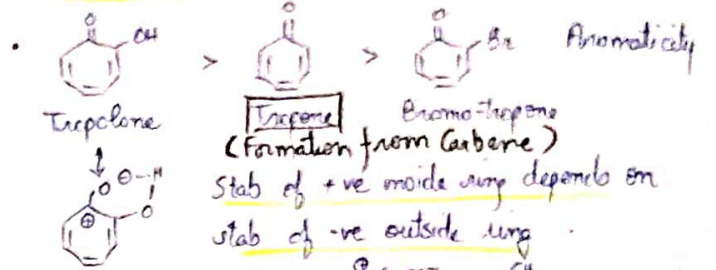 O O O
OH > > Br Aromaticity
Tropolone Tropone Bromo-tropone
(Formation from Carbene)
⊖ H
O O
⊕
Stab of +ve inside ring depends on
stab of -ve outside ring.